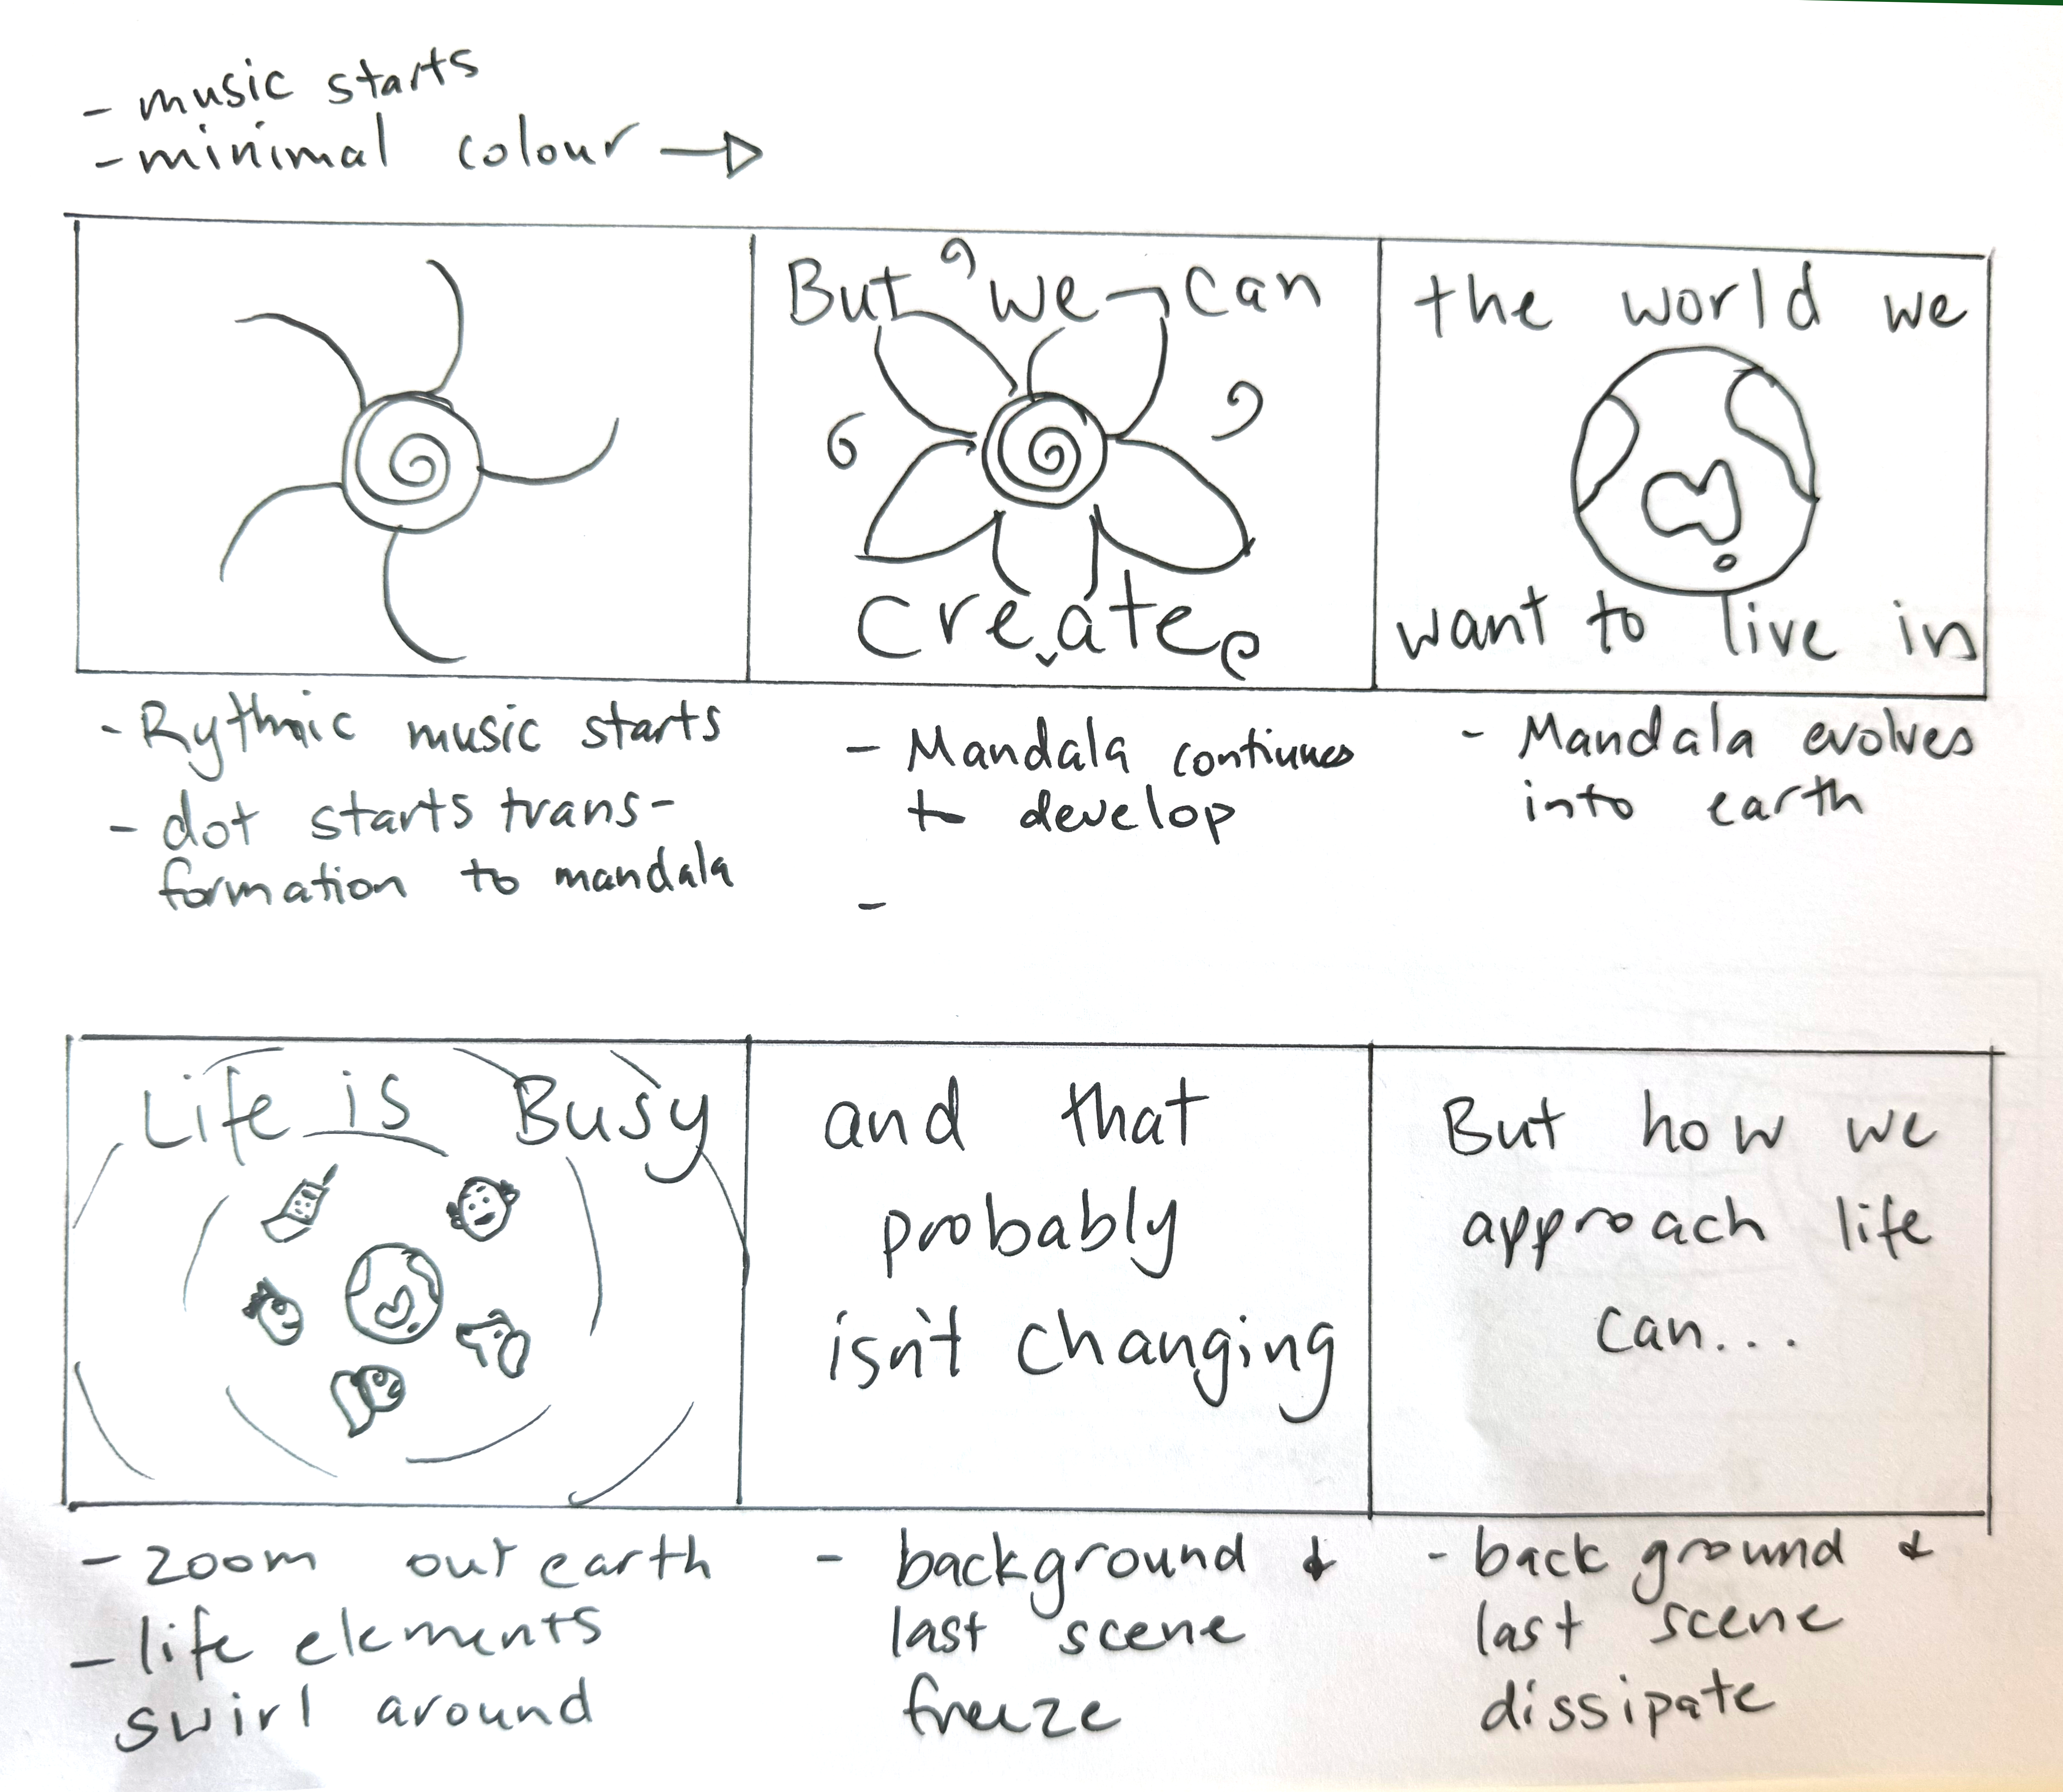 - music starts
- minimal colour →
But we can
create
the world we
want to live in
- Rythmic music starts
- dot starts trans-
formation to mandala
- Mandala continues
to develop
-
- Mandala evolves
into earth
Life is Busy
and that
probably
isn't changing
But how we
approach life
can...
- zoom out earth
- life elements
swirl around
- background &
last scene
freeze
- back ground &
last scene
dissipate